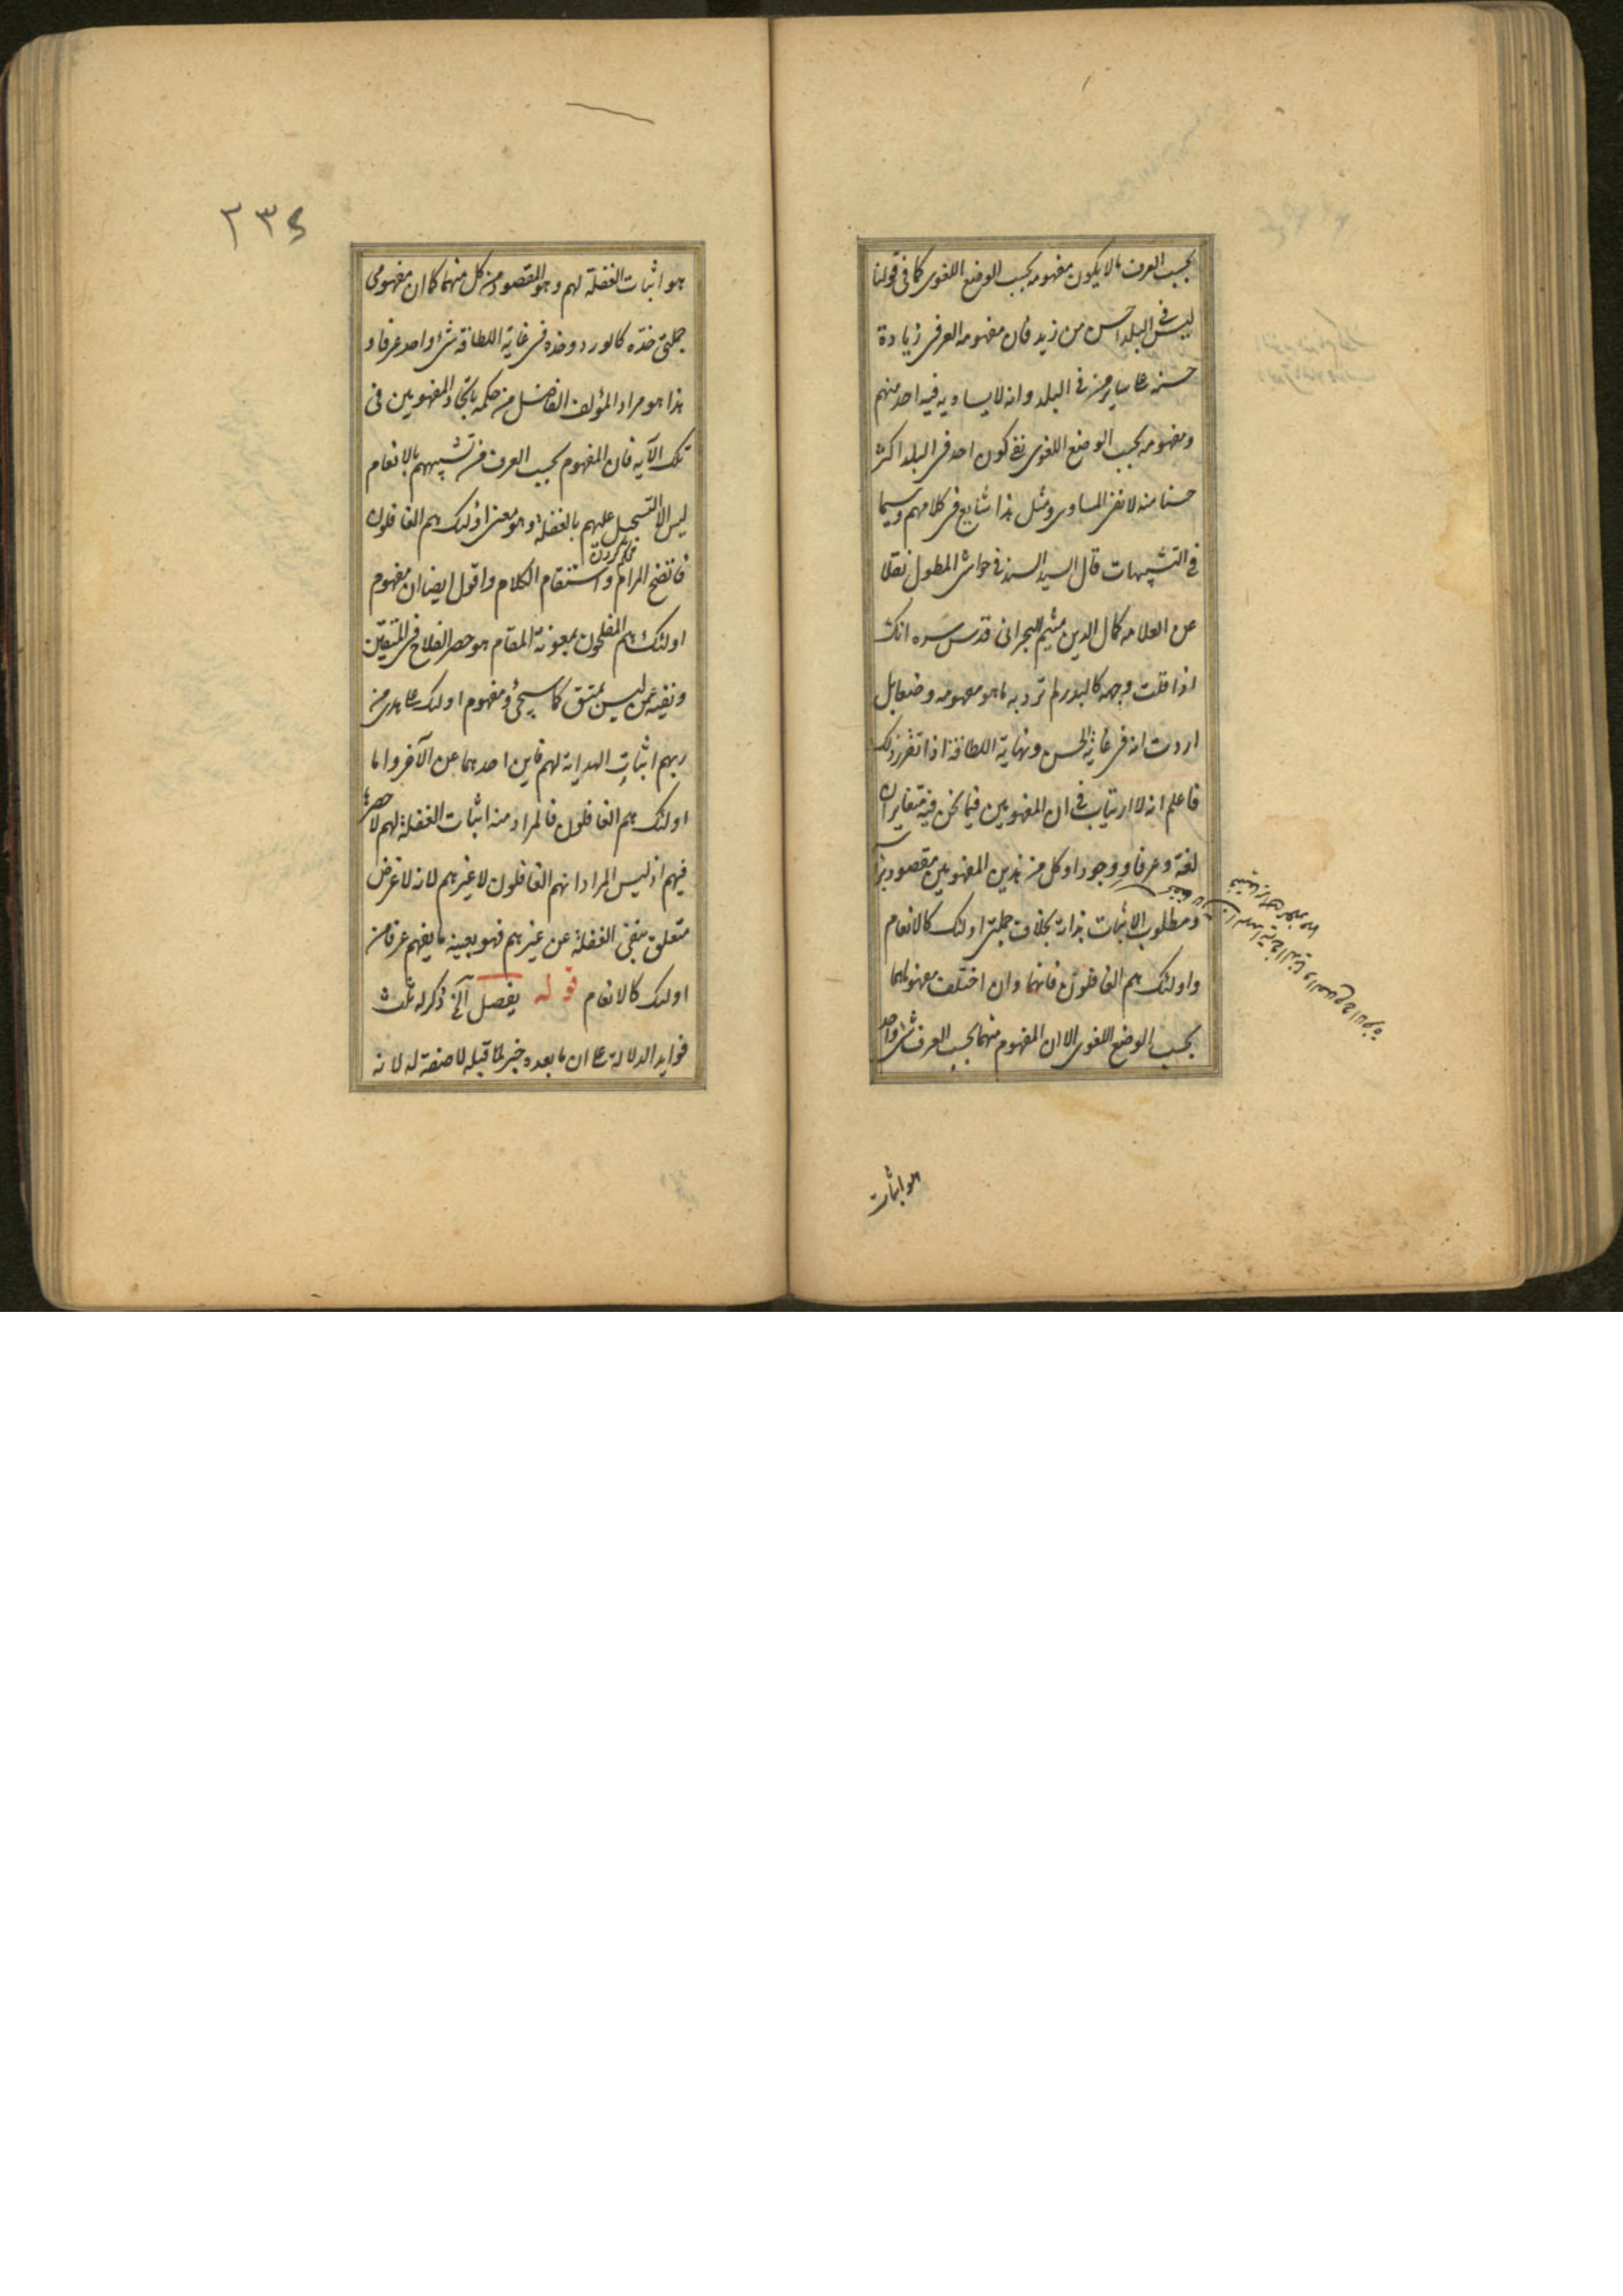 بحسب العرف ما لا يكون مفهومه بحسب الوضع اللغوى كما فى قولنا
ليس فى البلد احسن من زيد فان مفهومه العرفى زيادة
حسنه على ساير من فى البلد وانه لا يساويه فيه احد منهم
ومفهومه بحسب الوضع اللغوى نفى كون احد فى البلد اكثر
حسنا منه لا نفى المساوى ومثل هذا شايع فى كلامهم وسيما
فى التشبيهات قال السيد السند فى حواشى المطول نقلا
عن العلامه كمال الدين ميثم البحرانى قدس سره انك
اذا قلت وجهه كالبدر لم ترد به ما هو مفهومه وضعا بل
اردت انه فى غاية الحسن ونهاية اللطافة اذا تقرر ذلك
فاعلم انه لا ارتياب فى ان المفهومين فيما نحن فيه متغايران
لغة وعرفا ووجودا وكل من هذين المفهومين مقصود براسه
ومطلوب الاثبات بذاته بخلاف جملتى اولئك كالانعام
واولئك هم الغافلون فانهما وان اختلف مفهوماهما
بحسب الوضع اللغوى الا ان المفهوم منهما بحسب العرف شئ واحد
هو اثبات
٢٣٤
هو اثبات الغفلة لهم وهو المقصود من كل منهما كما ان مفهومى
جملتى خده كالورد وخده فى غاية اللطافة شئ واحد عرفا و
هذا هو مراد المؤلف الفاضل من حكمه باتحاد المفهومين فى
تلك الآية فان المفهوم بحسب العرف من تشبيههم بالانعام
ليس الا التسجيل عليهم بالغفلة وهو معنى اولئك هم الغافلون
فاتضح المرام واستقام الكلام واقول ايضا ان مفهوم
اولئك هم المفلحون بمعونة المقام هو حصر الفلاح فى المتقين
ونفيه عمن ليس بمتق كما سيجئ ومفهوم اولئك على هدى من
ربهم اثبات الهداية لهم فاين احدهما عن الآخر واما
اولئك هم الغافلون فالمراد منه اثبات الغفلة لهم لا حصرها
فيهم اذ ليس المراد انهم الغافلون لا غيرهم لانه لا غرض
متعلق بنفى الغفلة عن غيرهم فهو بعينه ما يفهم عرفا من
اولئك كالانعام قوله يفصل آلخ ذكر له ثلث
فوايد الدلالة على ان ما بعده خبر لما قبله لا صفة له لانه